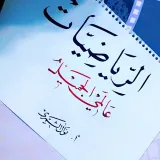 الرياضيات
عالمي الجميل